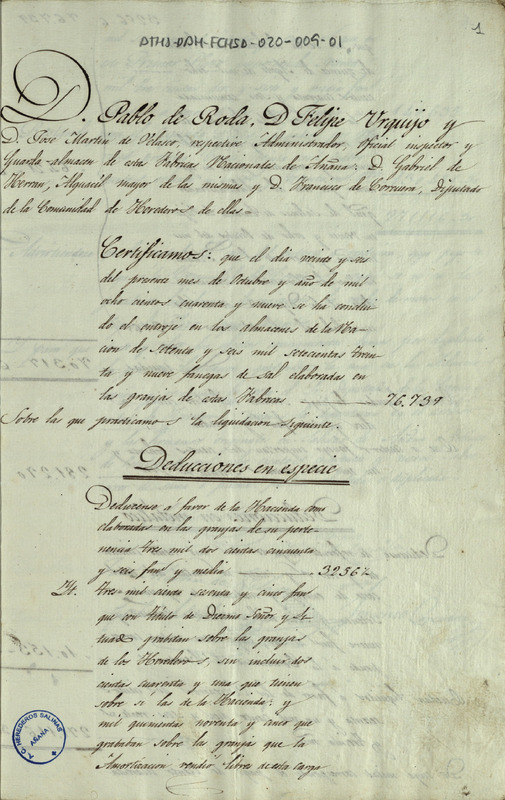 1
ATHA-DAH-FCHSA-020-009-01
D. Pablo de Roda, D Felipe Urquijo y
D. José Martin de Velasco, respective Administrador, Oficial inspector y
Guarda-almacen de estas Fabricas Nacionales de Añana: D. Gabriel de
Herran, Alguacil mayor de las mismas y D. Francisco de Corcuera, Diputado
de la Comunidad de Herederos de ellas=
Certificamos: que el dia veinte y seis
del presente mes de Octubre y año de mil
ocho cientos cuarenta y nueve se ha conclui
do el entroje en los almacenes de la Na-
cion de Setenta y seis mil setecientas trein
ta y nueve fanegas de sal elaboradas en
las granjas de estas Fabricas 76.739
Sobre las que practicamos la liquidacion siguiente.
Deducciones en especie
Deducense á favor de la Hacienda como
elaboradas en las granjas de su perte-
nencia tres mil dos cientas cincuenta
y seis fans y media 3256½
Id. tres mil ciento sesenta y cinco fans
que con titulo de Diezmo Señor y Si-
tuado grabitan sobre las granjas
de los Herederos, sin incluir dos
cientas cuarenta y una que tienen
sobre si las de la Hacienda: y
mil quinientas noventa y cinco que
grababan sobre las granjas que la
Amortizacion vendió libres de esta carga
A. C. HEREDEROS SALINAS
AÑANA